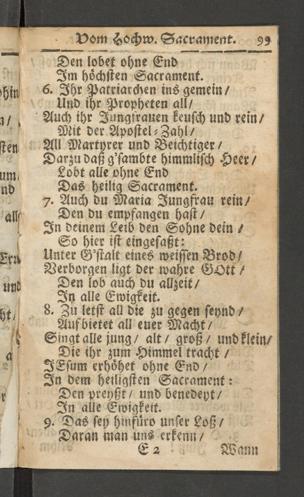 Vom Hochw. Sacrament. 99
Den lobet ohne End
Im höchsten Sacrament.
6. Ihr Patriarchen ins gemein /
Und ihr Propheten all /
Auch ihr Jungfrauen keusch und rein /
Mit der Apostel-Zahl /
All Martyrer und Beichtiger /
Darzu daß g'sambte himmlisch Heer /
Lobt alle ohne End
Das heilig Sacrament.
7. Auch du Maria Jungfrau rein /
Den du empfangen hast /
In deinem Leib den Sohne dein /
So hier ist eingefaßt:
Unter G'stalt eines weissen Brod /
Verborgen ligt der wahre GOtt /
Den lob auch du allzeit /
In alle Ewigkeit.
8. Zu letst all die zu gegen seynd /
Aufbietet all euer Macht /
Singt alle jung / alt / groß / und klein /
Die ihr zum Himmel tracht /
JEsum erhöhet ohne End /
In dem heiligsten Sacrament:
Den preyßt / und benedeyt /
In alle Ewigkeit.
9. Das sey hinfüro unser Loß /
Daran man uns erkenn /
E 2 Wann